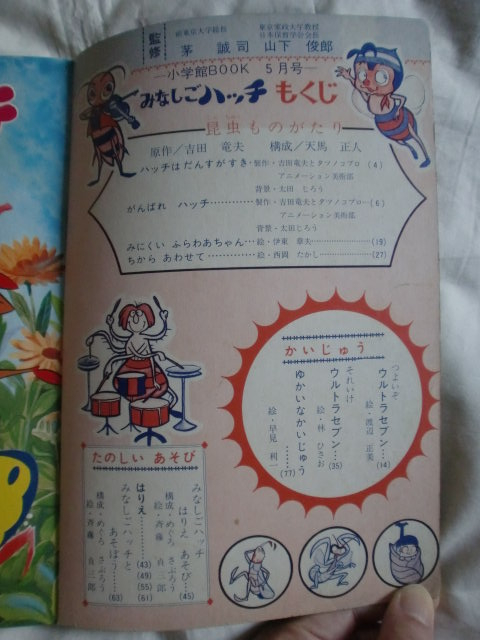 監修
前東京大学総長
茅 誠司
東京家政大学教授
日本保育学会会長
山下 俊郎
―小学館BOOK 5月号―
みなしごハッチ もくじ
昆虫ものがたり
原作/吉田 竜夫 構成/天馬 正人
ハッチは だんすがすき・製作・吉田竜夫とタツノコプロ (4)
アニメーション美術部
背景・太田 じろう
がんばれ ハッチ…………製作・吉田竜夫とタツノコプロ…(6)
アニメーション美術部
背景・太田じろう
みにくい ふらわあちゃん…絵・伊東 章夫…………………(19)
ちから あわせて…………絵・西岡 たかし………………(27)
かいじゅう
つよいぞ
ウルトラセブン…(14)
絵・渡辺 正美
それいけ
ウルトラセブン…(35)
絵・林 ひさお
ゆかいなかいじゅう……(77)
絵・早見 利一
たのしい あそび
みなしごハッチ
はりえ あそび…(45)
構成・めぐろ さぶろう
絵・斉藤 貞三郎
はりえ………(43)
(49)
(55)
(61)
みなしごハッチと
あそぼう……(63)
構成・めぐろ さぶろう
絵・斉藤 貞三郎